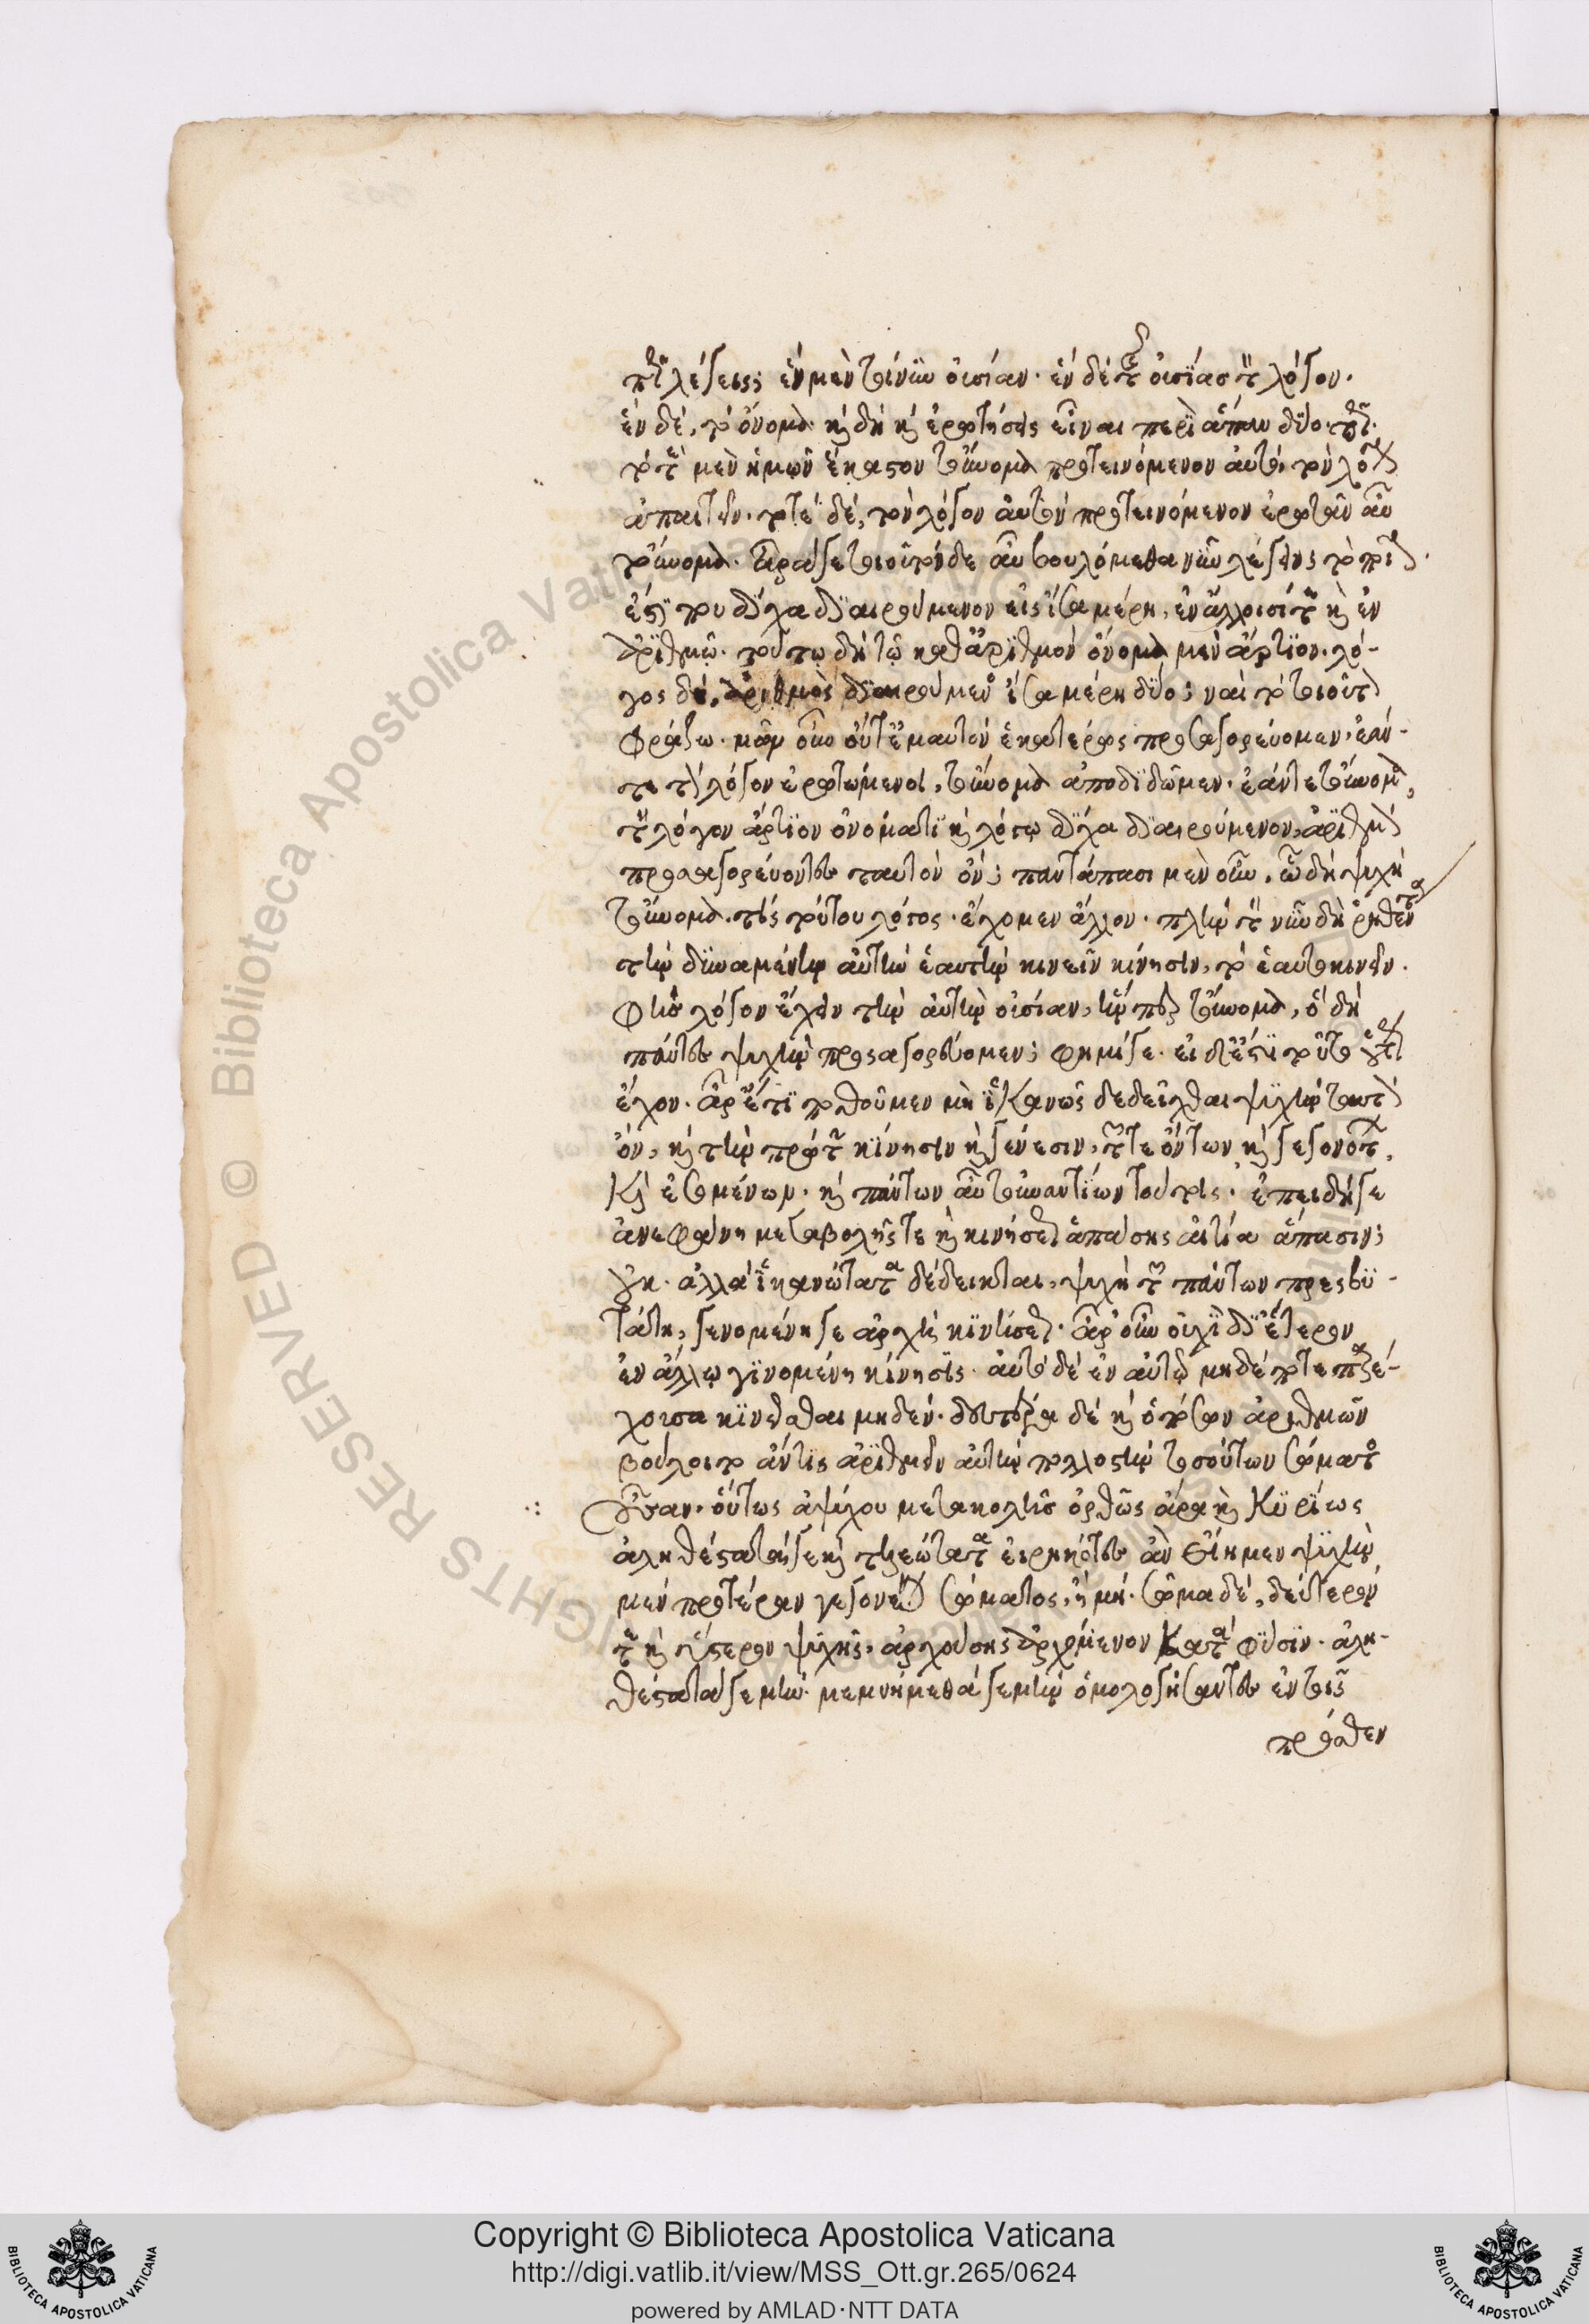 πῶς λέγεις; ἓν μὲν τὴν οὐσίαν. ἓν δὲ τῆς οὐσίας τὸν λόγον.
ἓν δὲ, τὸ ὄνομα. καὶ δὴ καὶ ἐρωτήσεις εἶναι περὶ ἅπαν δύο. πῶς.
τοτὲ μὲν ἡμῶν ἕκαστον τοὔνομα προτεινόμενον αὐτὸ, τὸν λόγον
ἀπαιτεῖν. τοτὲ δὲ, τὸν λόγον αὐτὸν προτεινόμενον ἐρωτᾶν αὖ
τοὔνομα. ἆρά γε τὸ τοιόνδε αὖ βουλόμεθα νῦν λέγειν; τὸ ποῖον.
ἔστι που δίχα διαιρούμενον εἰς ἴσα μέρη, ἐν ἄλλοις τε καὶ ἐν
ἀριθμῷ. τούτῳ δὴ τῷ κατ' ἀριθμὸν ὄνομα μὲν ἄρτιον. λό-
γος δὲ, ἀριθμὸς διαιρούμενος ἴσα μέρη δύο; ναί τὸ τοιοῦτον
φράζω. μῶν οὖν οὐ ταὐτὸν ἑκατέρως προσαγορεύομεν, ἐάν-
τε τὸν λόγον ἐρωτώμενοι, τοὔνομα ἀποδιδῶμεν. ἐάντε τοὔνομα,
τὸν λόγον ἄρτιον ὀνόματι καὶ λόγῳ δίχα διαιρούμενον, ἀριθμὸν
προσαγορεύοντες ταυτὸν ὄν; παντάπασι μὲν οὖν. ᾧ δὴ ψυχὴ
τοὔνομα. τίς τούτου λόγος. ἔχομεν ἄλλον. πλὴν τὸν νῦν δὴ ῥηθέντα
τὴν δυναμένην αὐτὴν ἑαυτὴν κινεῖν κίνησιν, τὸ ἑαυτὸ κινεῖν.
φὴς λόγον ἔχειν τὴν αὐτὴν οὐσίαν, ἥνπερ τοὔνομα, ὃ δὴ
πάντες ψυχὴν προσαγορεύομεν; φημί γε. εἰ δ' ἔστι τοῦτο οὕτως
ἔχον. ἆρ' ἔτι ποθοῦμεν μὴ ἱκανῶς δεδεῖχθαι ψυχὴν ταυτὸν
ὂν, καὶ τὴν πρώτην κίνησιν καὶ γένεσιν, τῶν τε ὄντων καὶ γεγονότων,
καὶ ἐσομένων. καὶ πάντων αὖ τῶν ἐναντίων τούτοις. ἐπειδή γε
ἀνεφάνη μεταβολῆς τε καὶ κινήσεως ἁπάσης αἰτία ἅπασιν;
οὔκ. ἀλλὰ ἱκανώτατα δέδεικται, ψυχὴ τῶν πάντων πρεσβυ-
τάτη, γενομένη γε ἀρχὴ κινήσεως. ἆρ' οὖν οὐχὶ δι' ἕτερον
ἐν ἄλλῳ γινομένη κίνησις. αὐτὸ δὲ ἐν αὑτῷ μηδέποτε παρέ-
χουσα κινεῖσθαι μηδὲν. δευτέρα δὲ καὶ ὁπόσων ἀριθμῶν
βούλοιτο ἄν τις ἀριθμεῖν αὐτὴν πολλοστὴν τοσούτων σώματος
οὖσαν. οὕτως ἀψύχου μεταβολὴ ὀρθῶς ἄρα καὶ κυρίως
ἀληθέστατά γε καὶ τελεώτατα εἰρηκότες ἂν εἴημεν ψυχὴν
μὲν προτέραν γεγονέναι σώματος, ἡμῖν. σῶμα δὲ, δεύτερον
τε καὶ ὕστερον ψυχῆς, ἀρχούσης ἀρχόμενον κατὰ φύσιν. ἀλη-
θέστατά γε μὴν. μεμνήμεθά γε μὴν ὁμολογήσαντες ἐν τοῖς
πρόσθεν
Copyright © Biblioteca Apostolica Vaticana
http://digi.vatlib.it/view/MSS_Ott.gr.265/0624
powered by AMLAD·NTT DATA